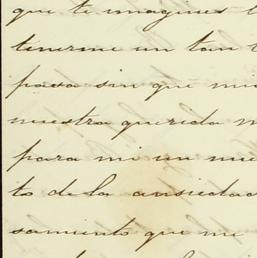 que te imagines l
tenerme un tan t
pasa sin que mi
nuestra querida m
para mi un mu
to de la ansiedad
samiento que me